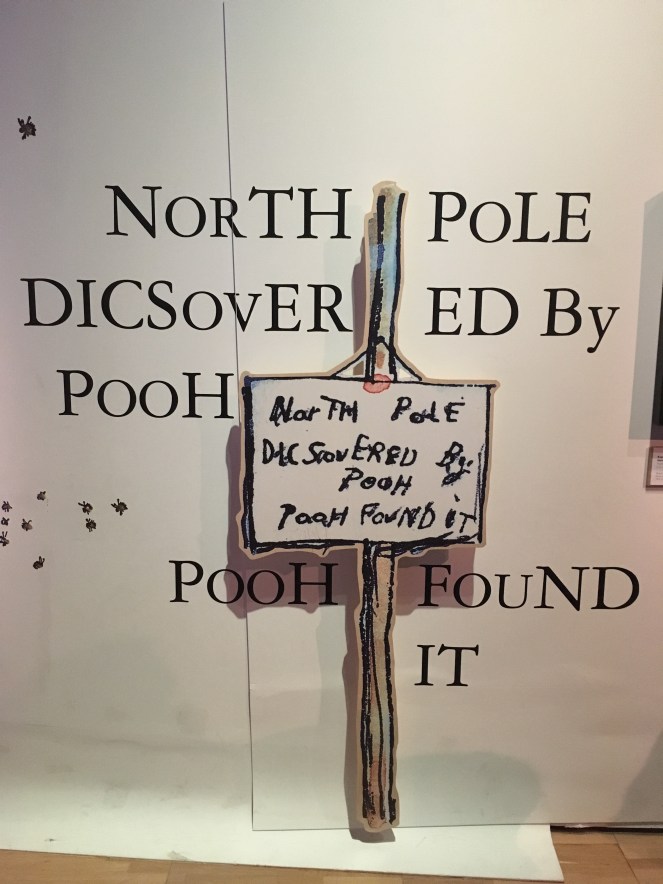 NORTH POLE
DICSOVERED By
POOH
NorTH PoLE
DICSovERED By
POOH
PooH FouND iT
POOH FOUND
IT